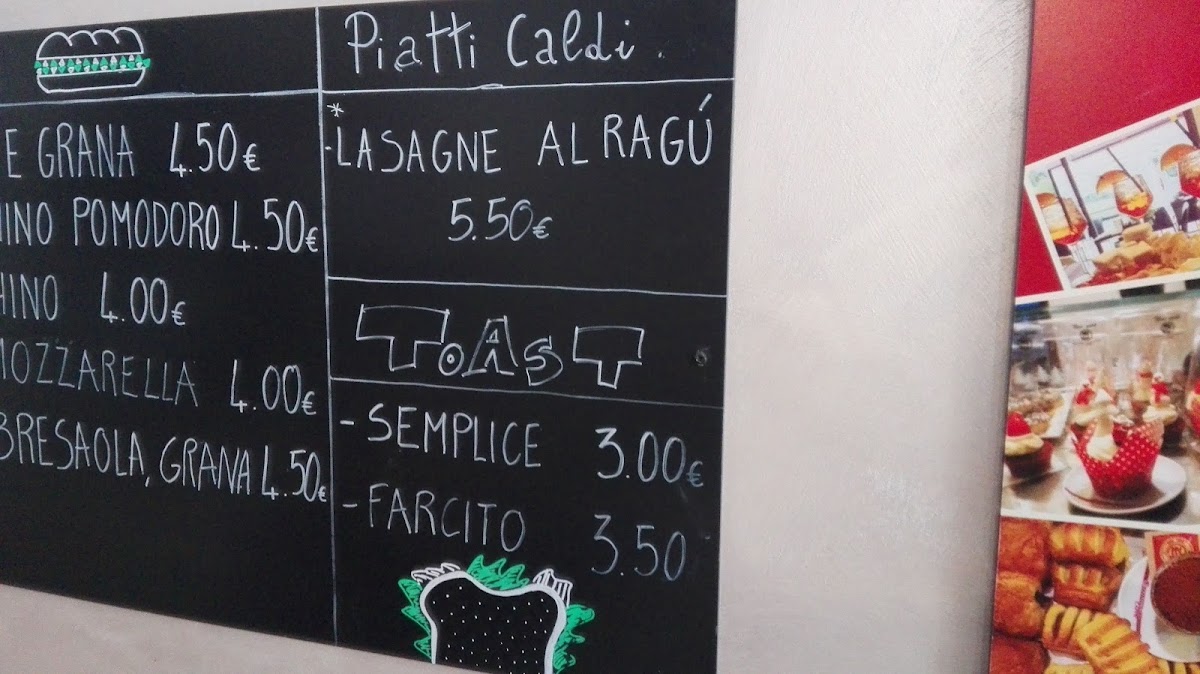 E GRANA 4.50€
POMODORO 4.50€
4.00€
MOZZARELLA 4.00€
BRESAOLA, GRANA 4.50€
Piatti Caldi.
*
-LASAGNE AL RAGÚ
5.50€
TOAST
- SEMPLICE 3.00€
- FARCITO 3.50